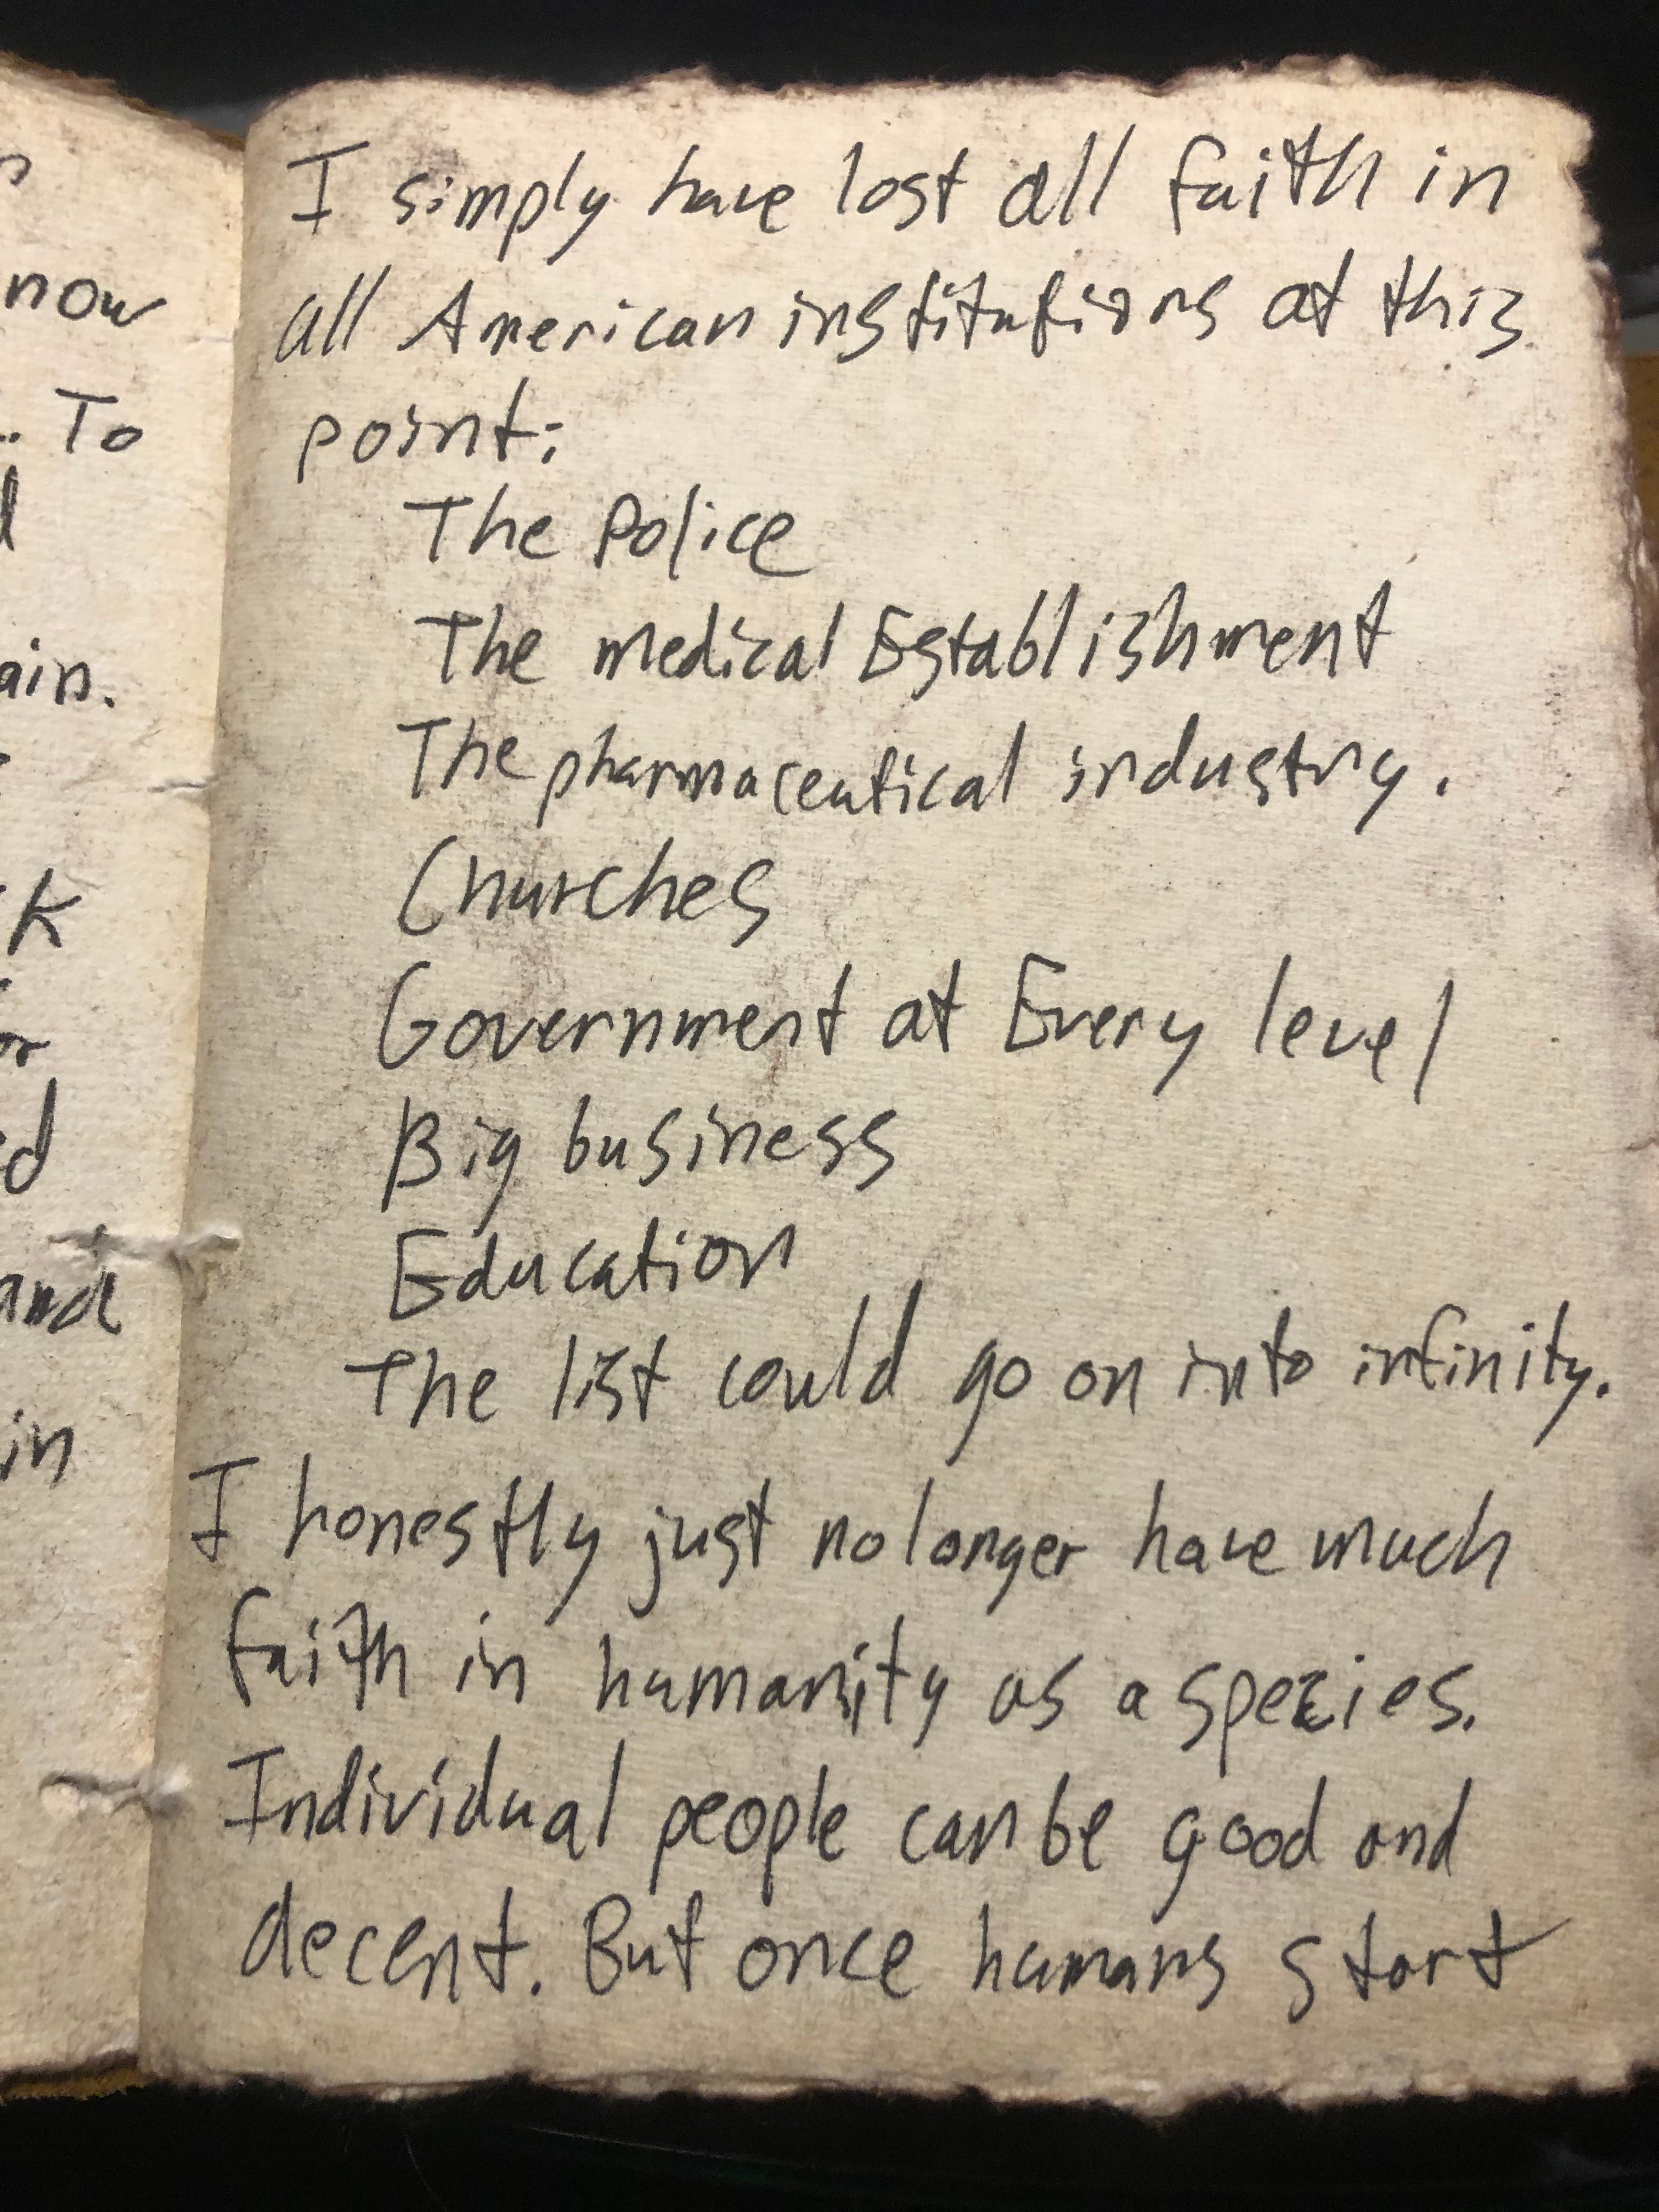 now
.. To
ain.
k
or
ed
and
in
I simply have lost all faith in
all American institutions at this
point:
The Police
The medical Establishment
The pharmaceutical industry.
Churches
Government at Every level
Big business
Education
The list could go on into infinity.
I honestly just no longer have much
faith in humanity as a species.
Individual people can be good and
decent. But once humans start